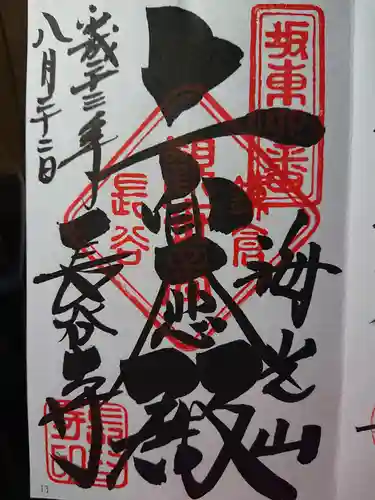 坂東四番
海光山
大悲殿
鎌倉
長谷
平成二十三年
八月二十二日
長谷寺
長谷寺印
13